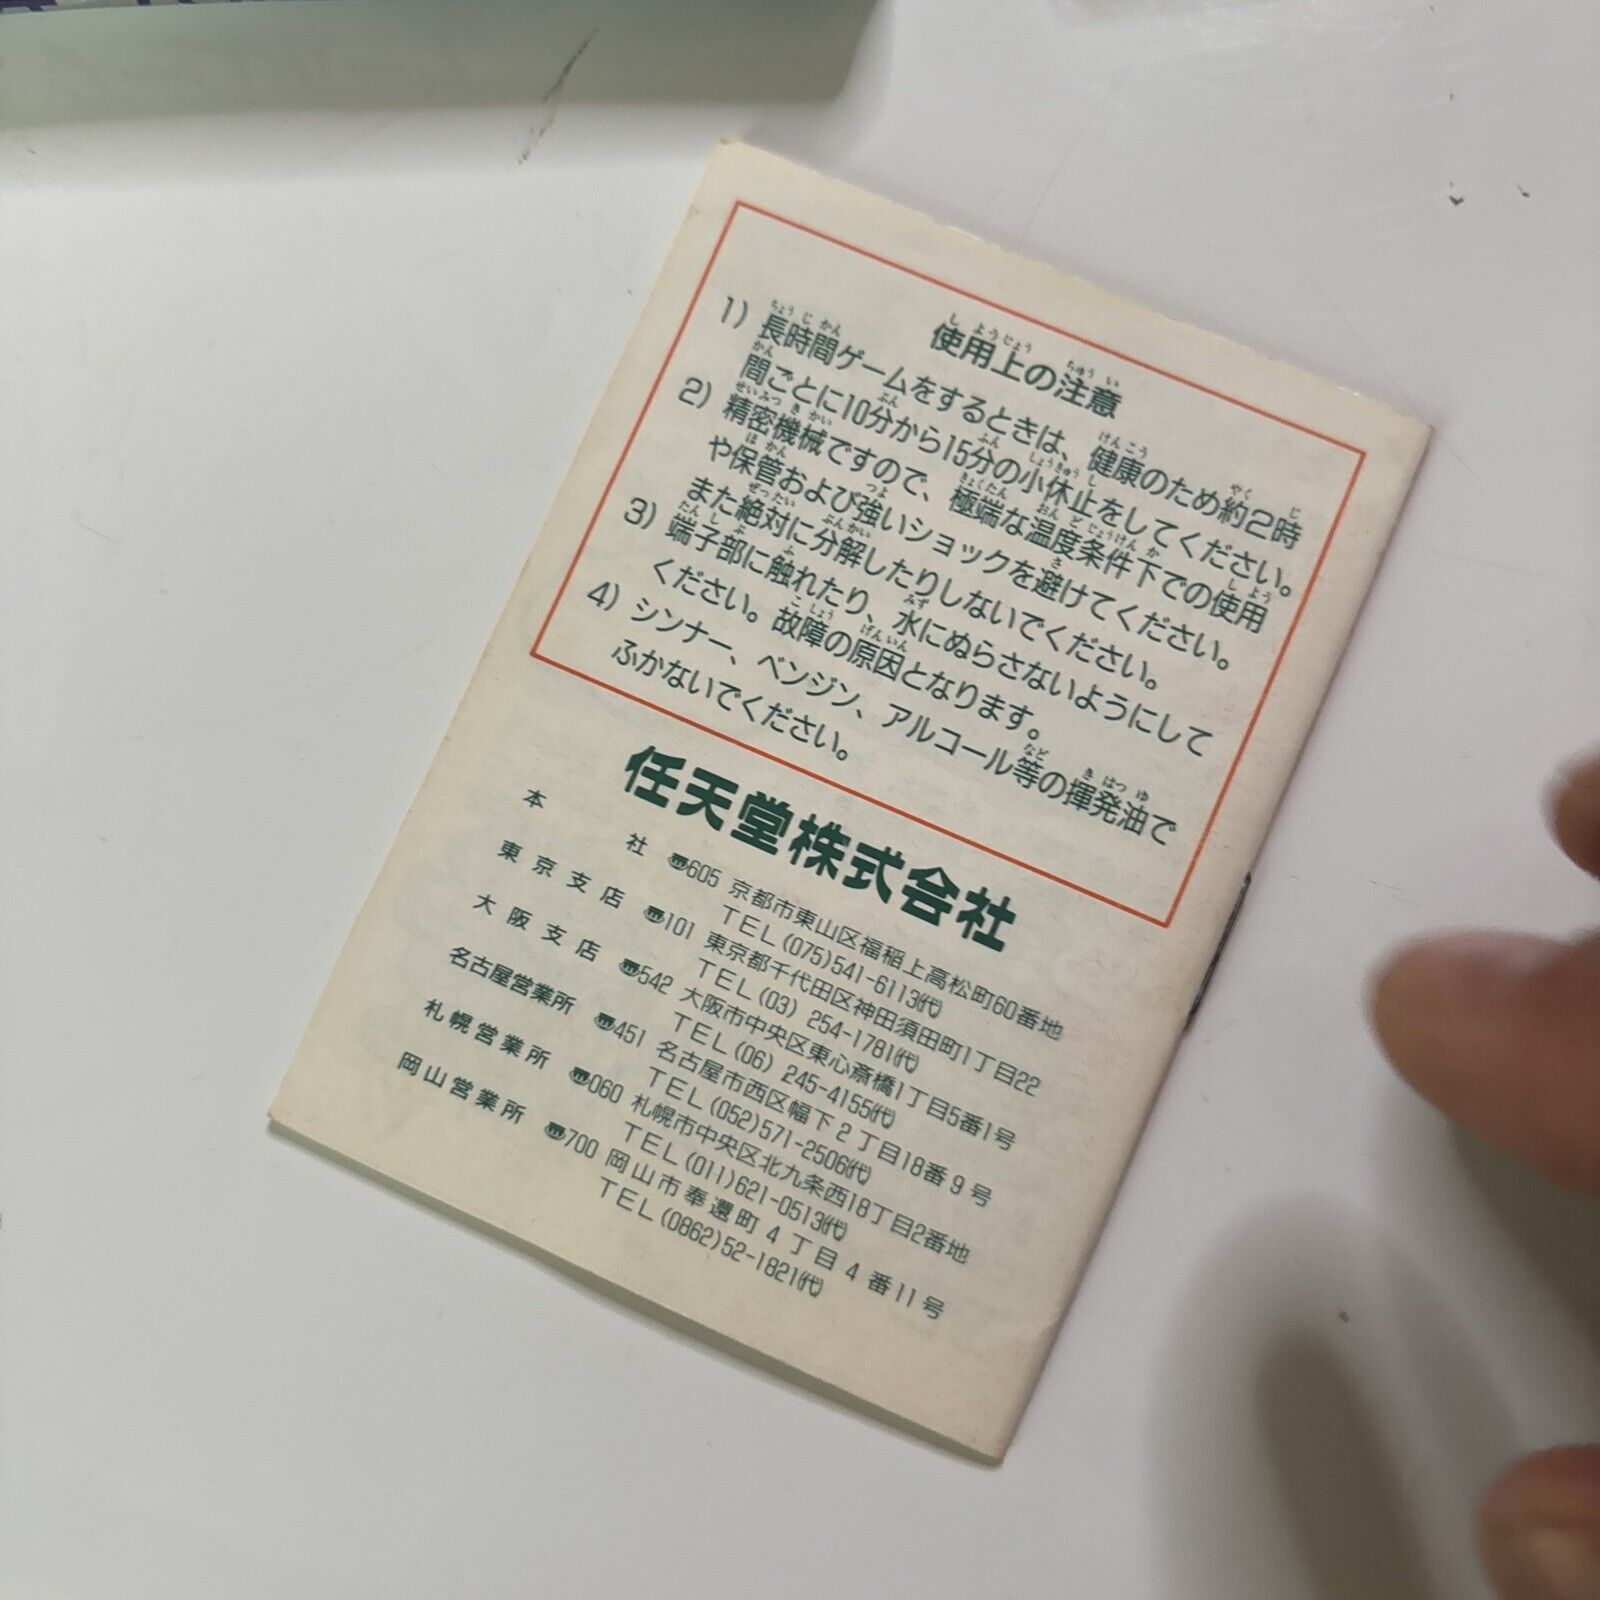 使用上の注意
1) 長時間ゲームをするときは、健康のため約2時
間ごとに10分から15分の小休止をしてください。
2) 精密機械ですので、極端な温度条件下での使用
や保管および強いショックを避けてください。
また絶対に分解したりしないでください。
3) 端子部に触れたり、水にぬらさないようにして
ください。故障の原因となります。
4) シンナー、ベンジン、アルコール等の揮発油で
ふかないでください。
任天堂株式会社
本社 〠605 京都市東山区福稲上高松町60番地
TEL(075)541-6113(代)
東京支店 〠101 東京都千代田区神田須田町1丁目22
TEL(03) 254-1781(代)
大阪支店 〠542 大阪市中央区東心斎橋1丁目5番1号
TEL(06) 245-4155(代)
名古屋営業所 〠451 名古屋市西区幅下2丁目18番9号
TEL(052)571-2506(代)
札幌営業所 〠060 札幌市中央区北九条西18丁目2番地
TEL(011)621-0513(代)
岡山営業所 〠700 岡山市奉還町4丁目4番11号
TEL(0862)52-1821(代)